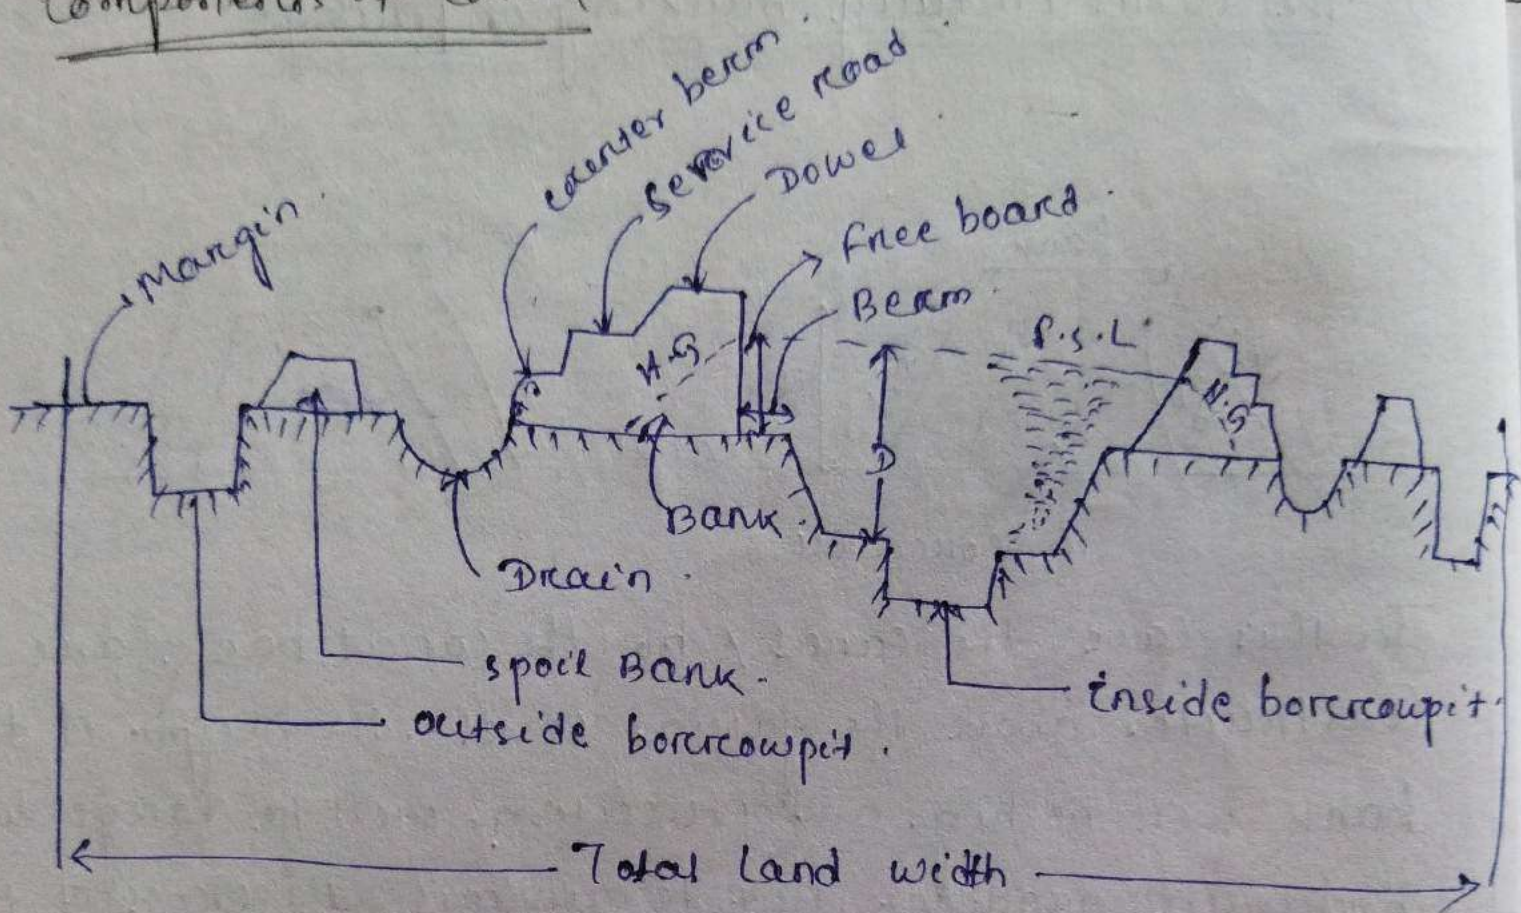 Components of
counter berm
Service road
Dowel
Free board
Berm
Margin
H.G
F.S.L
H.G
D
Bank
Drain
spoil Bank
outside borrowpit
inside borrowpit
Total Land width